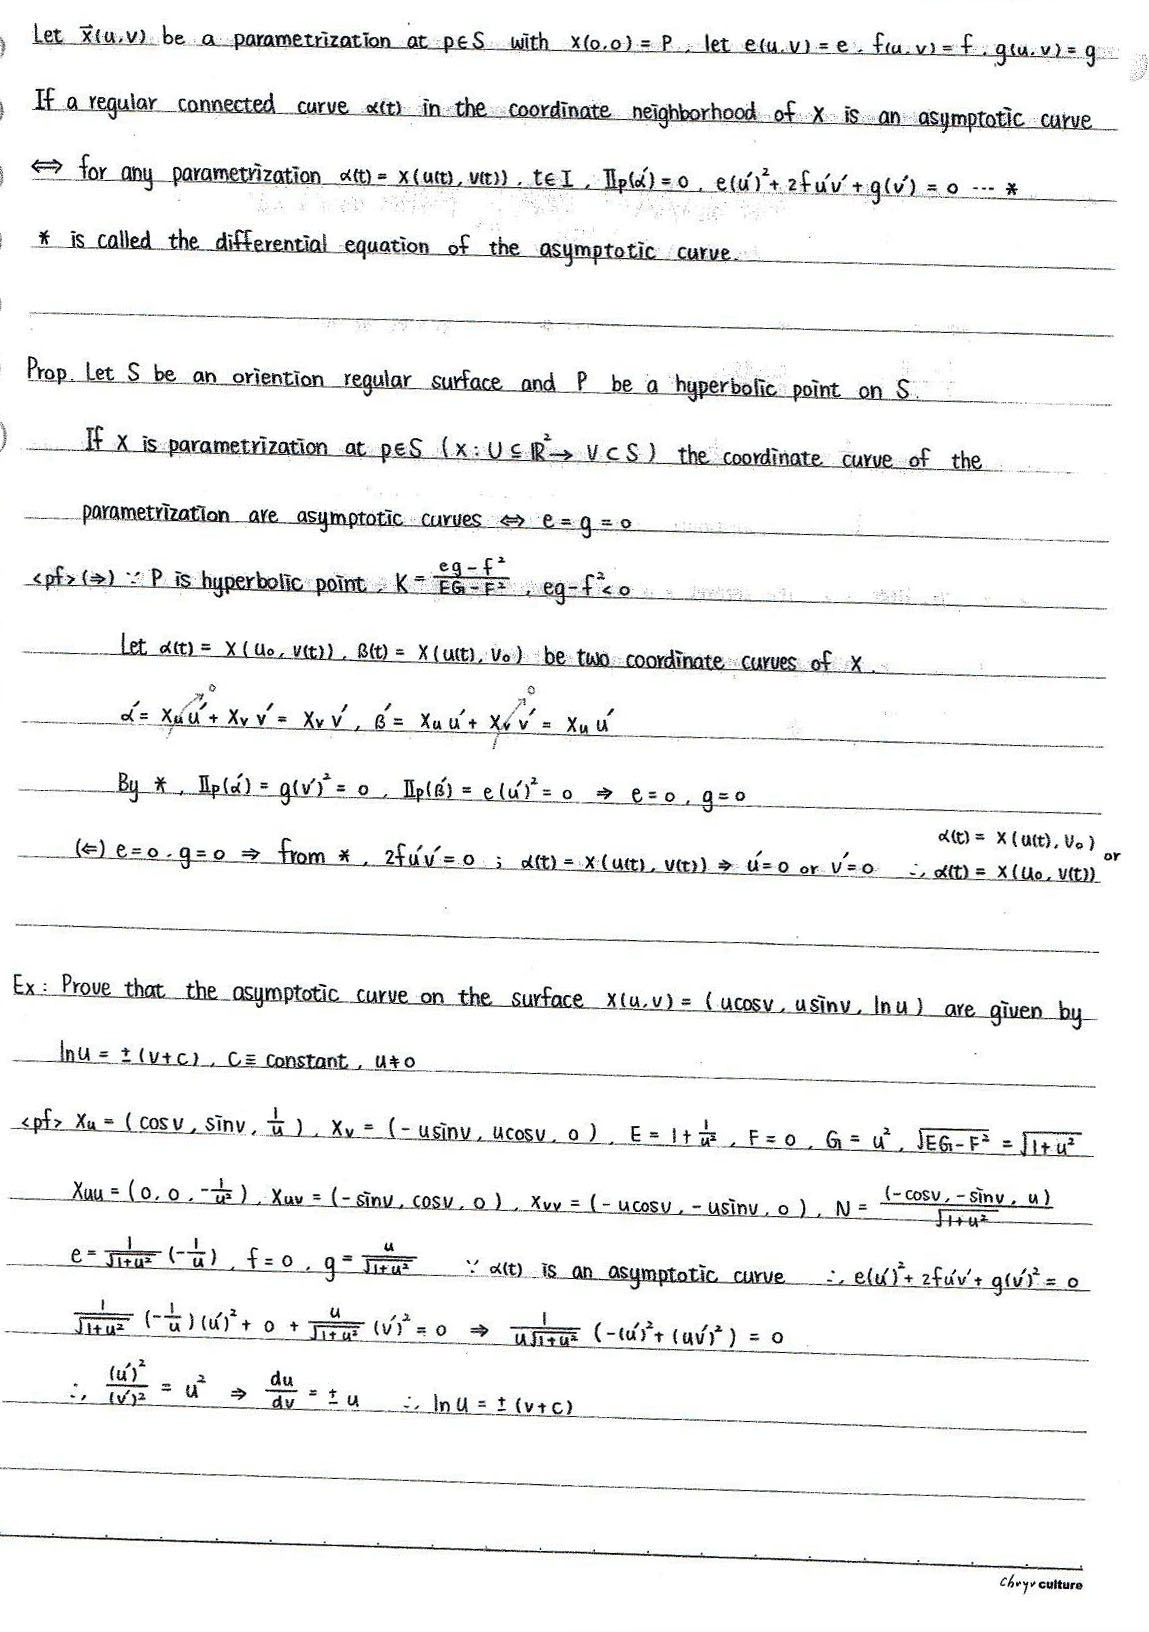 Let x⃗(u,v) be a parametrization at p∈S with x(0,0) = P. let e(u,v) = e, f(u,v) = f, g(u,v) = g
If a regular connected curve α(t) in the coordinate neighborhood of x is an asymptotic curve
⇔ for any parametrization α(t) = x(u(t), v(t)), t∈I, IIp(α') = 0, e(u')² + 2fu'v' + g(v') = 0 --- *
* is called the differential equation of the asymptotic curve.
Prop. Let S be an oriention regular surface and P be a hyperbolic point on S.
If x is parametrization at p∈S (x : U ⊆ ℝ² → V ⊂ S) the coordinate curve of the
parametrization are asymptotic curves ⇔ e = g = 0
<pf> (⇒) ∵ P is hyperbolic point, K = (eg - f²)/(EG - F²), eg - f² < 0
Let α(t) = x(u₀, v(t)), β(t) = x(u(t), v₀) be two coordinate curves of x.
α' = xᵤu'↗0 + xᵥv' = xᵥv', β' = xᵤu' + xᵥv'↗0 = xᵤu'
By *, IIp(α') = g(v')² = 0, IIp(β') = e(u')² = 0 ⇒ e = 0, g = 0
(⇐) e = 0, g = 0 ⇒ from *, 2fu'v' = 0 ; α(t) = x(u(t), v(t)) ⇒ u' = 0 or v' = 0 ∴ α(t) = x(u(t), v₀) or α(t) = x(u₀, v(t))
Ex : Prove that the asymptotic curve on the surface x(u,v) = (ucosv, usinv, ln u) are given by
ln u = ±(v+c), C ≡ constant, u ≠ 0
<pf> xᵤ = (cosv, sinv, 1/u), xᵥ = (-usinv, ucosv, 0), E = 1 + 1/u², F = 0, G = u², √(EG - F²) = √(1+u²)
xᵤᵤ = (0, 0, -1/u²), xᵤᵥ = (-sinv, cosv, 0), xᵥᵥ = (-ucosv, -usinv, 0), N = (-cosv, -sinv, u)/√(1+u²)
e = 1/√(1+u²) (-1/u), f = 0, g = u/√(1+u²) ∵ α(t) is an asymptotic curve ∴ e(u')² + 2fu'v' + g(v')² = 0
1/√(1+u²) (-1/u)(u')² + 0 + u/√(1+u²) (v')² = 0 ⇒ 1/(u√(1+u²)) (-(u')² + (uv')²) = 0
∴ (u')²/(v')² = u² ⇒ du/dv = ± u ∴ ln u = ±(v+c)
culture